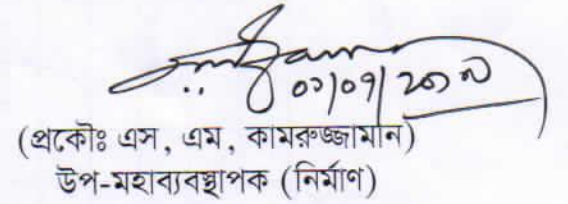 ০১/০৭/২০১৯
(প্রকৌঃ এস, এম, কামরুজ্জামান)
উপ-মহাব্যবস্থাপক (নির্মাণ)